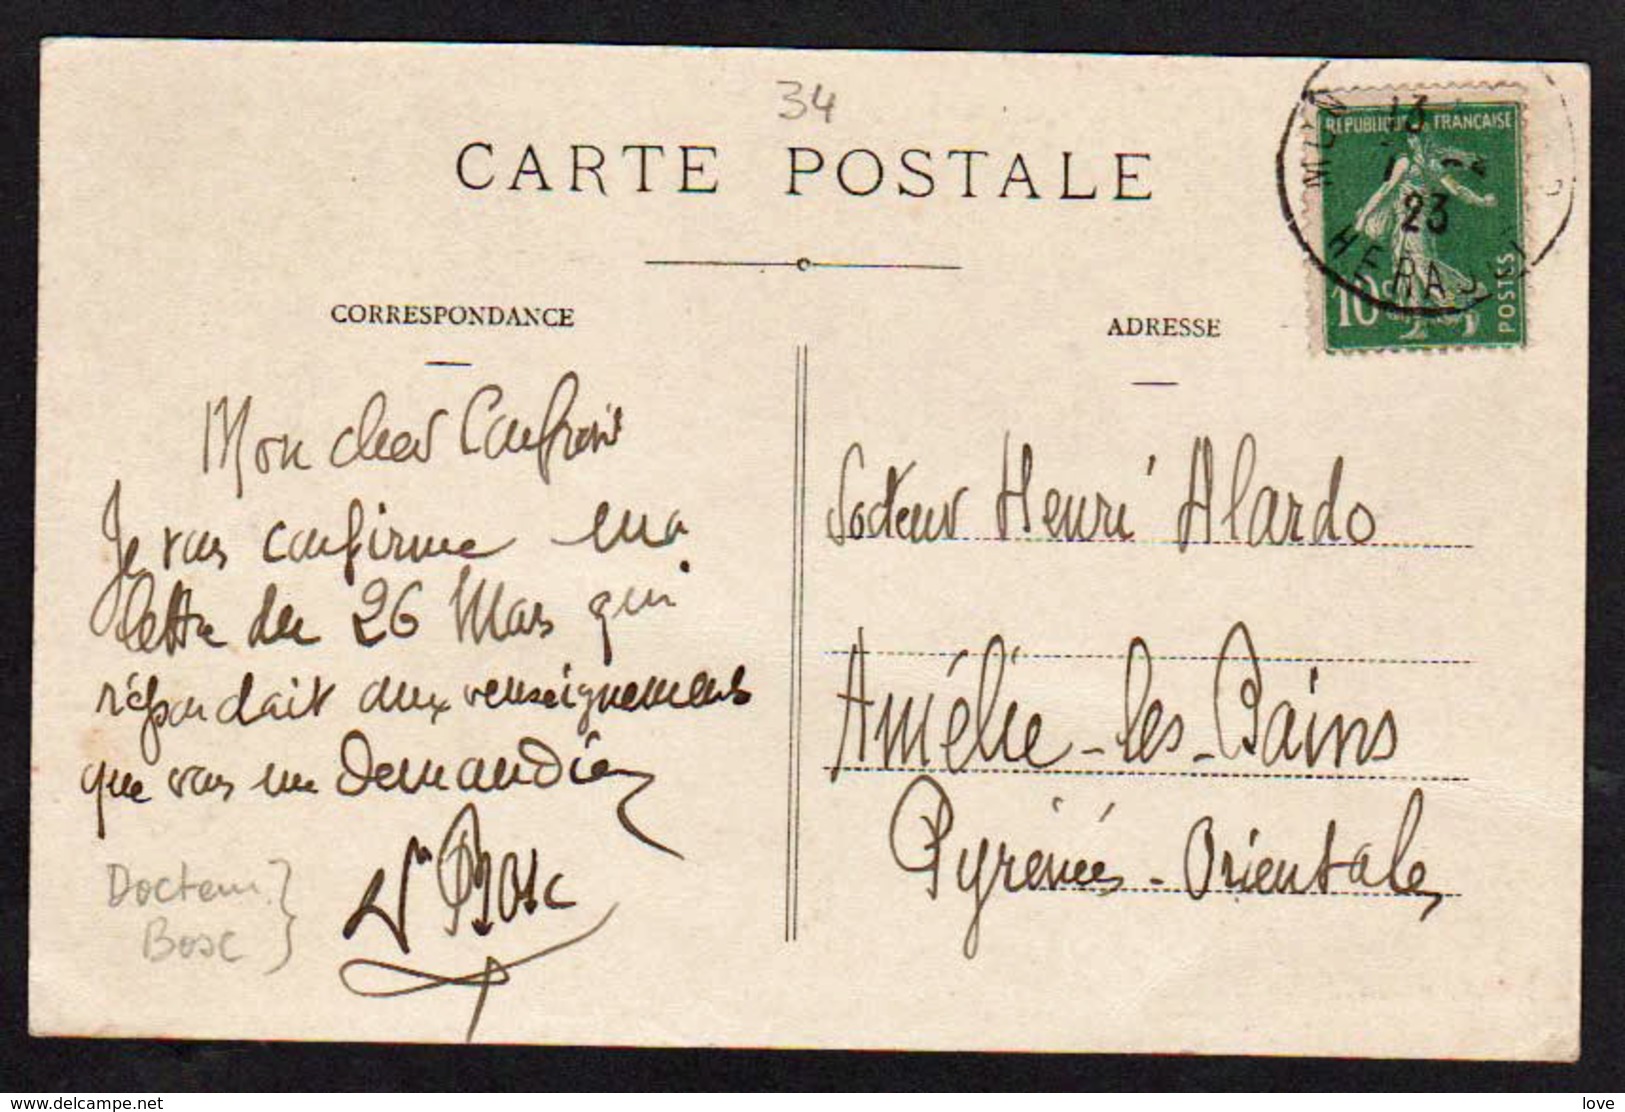 34
CARTE POSTALE
CORRESPONDANCE
ADRESSE
REPUBLIQUE FRANÇAISE
10
POSTES
13
23
HERAULT
Mon cher Confrère
Je vous confirme ma
lettre du 26 Mars qui
répondait aux renseignements
que vous me demandiez
Dr Bosc
Docteur
Bosc
Docteur Henri Alardo
Amélie-les-Bains
Pyrénées-Orientales
www.delcampe.net
love